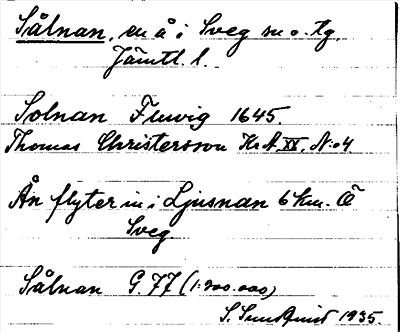 Sålnan, en å i Sveg sn o. tg,
Jämtl. l.
Solnan Fluvig 1645.
Thomas Christersson Kr A. XX. N:o 4.
Ån flyter in i Ljusnan 6 km. Ö
Sveg
Sålnan G. 77 (1:200.000)
S. Sundquist 1935.